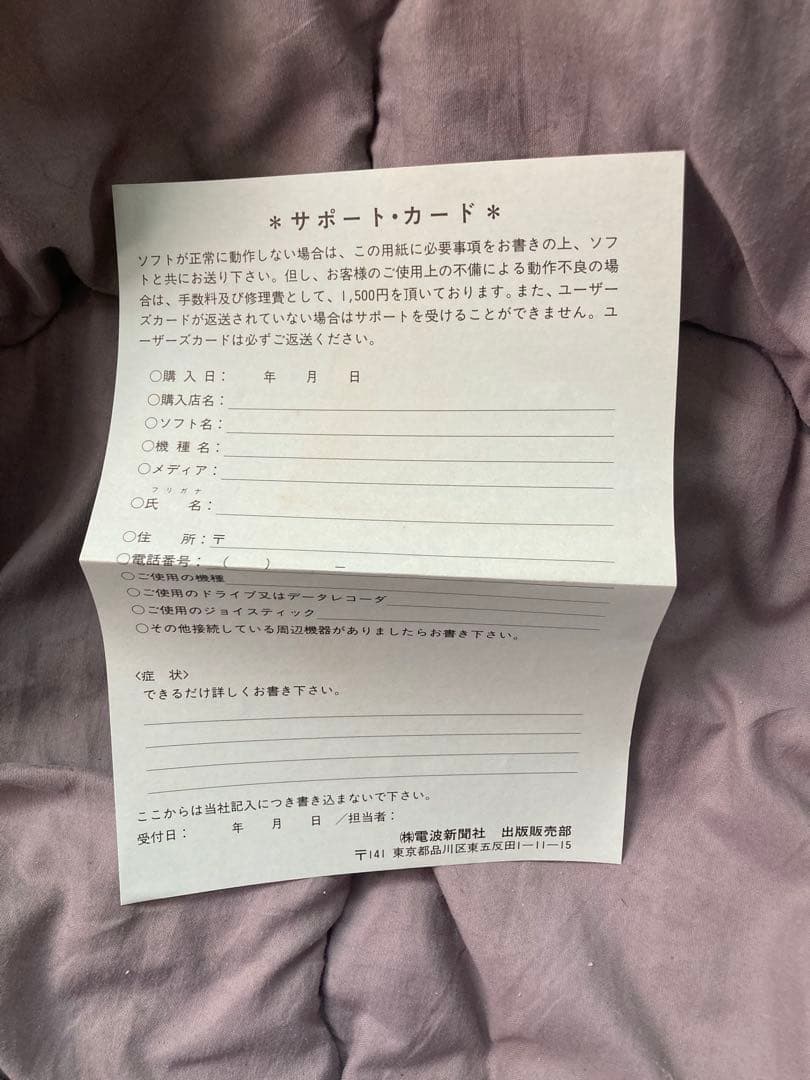 ＊サポート・カード＊
ソフトが正常に動作しない場合は、この用紙に必要事項をお書きの上、ソフ
トと共にお送り下さい。但し、お客様のご使用上の不備による動作不良の場
合は、手数料及び修理費として、1,500円を頂いております。また、ユーザー
ズカードが返送されていない場合はサポートを受けることができません。ユ
ーザーズカードは必ずご返送ください。
○購入日： 年 月 日
○購入店名：
○ソフト名：
○機種名：
○メディア：
フリガナ
○氏 名：
○住 所：〒
○電話番号： （ ） －
○ご使用の機種
○ご使用のドライブ又はデータレコーダ
○ご使用のジョイスティック
○その他接続している周辺機器がありましたらお書き下さい。
〈症 状〉
できるだけ詳しくお書き下さい。
ここからは当社記入につき書き込まないで下さい。
受付日： 年 月 日 ／担当者：
㈱電波新聞社 出版販売部
〒141 東京都品川区東五反田1－11－15